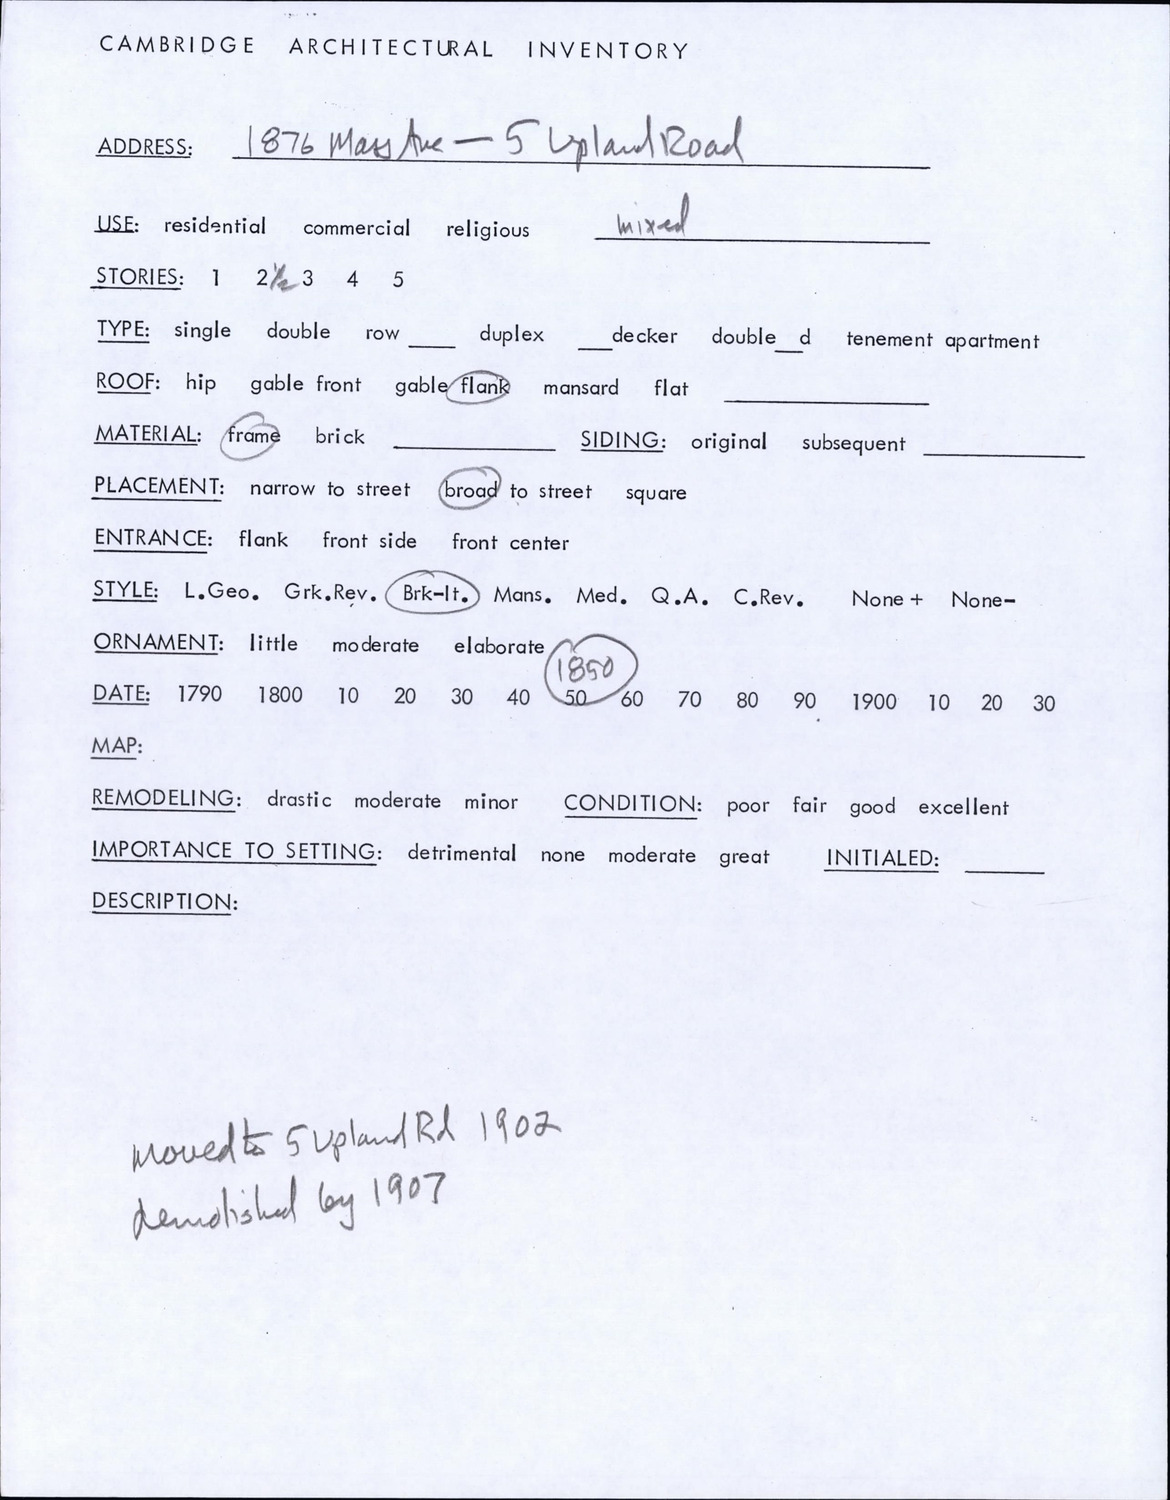 CAMBRIDGE ARCHITECTURAL INVENTORY
ADDRESS: 1876 Mass Ave — 5 Upland Road
USE: residential commercial religious mixed
STORIES: 1 2 1/2 3 4 5
TYPE: single double row ____ duplex ____decker double__d tenement apartment
ROOF: hip gable front gable flank mansard flat ____
MATERIAL: frame brick ____ SIDING: original subsequent ____
PLACEMENT: narrow to street broad to street square
ENTRANCE: flank front side front center
STYLE: L.Geo. Grk.Rev. Brk-It. Mans. Med. Q.A. C.Rev. None + None-
ORNAMENT: little moderate elaborate
1850
DATE: 1790 1800 10 20 30 40 50 60 70 80 90 1900 10 20 30
MAP:
REMODELING: drastic moderate minor CONDITION: poor fair good excellent
IMPORTANCE TO SETTING: detrimental none moderate great INITIALED: ____
DESCRIPTION:
moved to 5 Upland Rd 1902
demolished by 1907